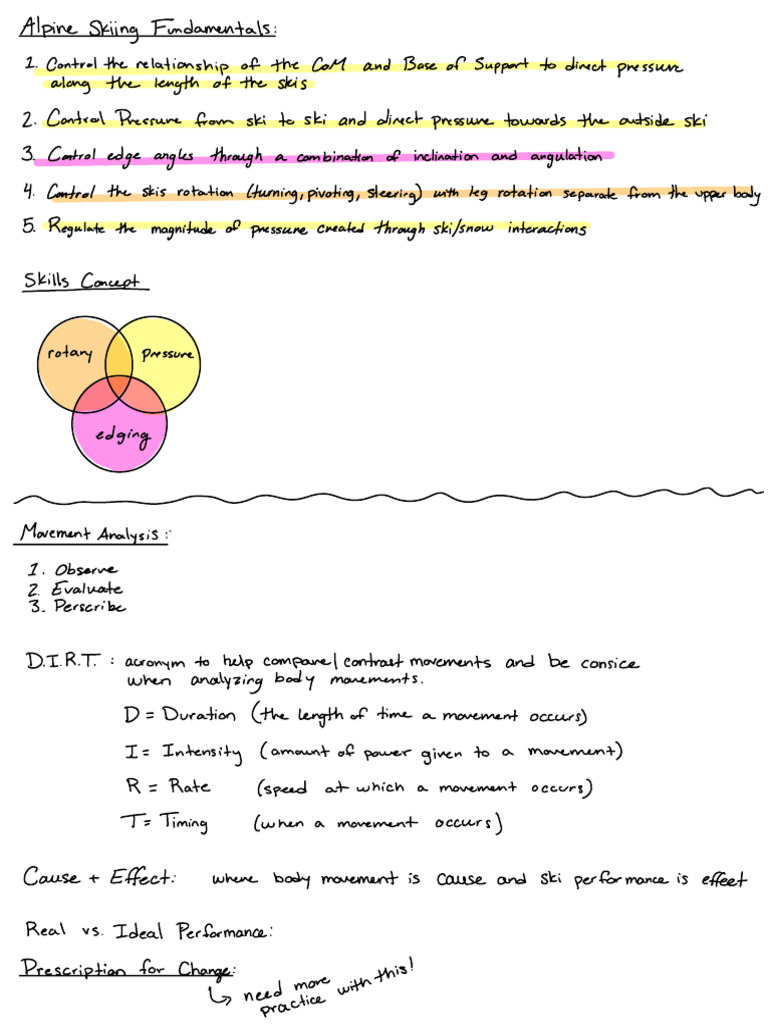 Alpine Skiing Fundamentals:
1. Control the relationship of the CoM and Base of Support to direct pressure
along the length of the skis
2. Control Pressure from ski to ski and direct pressure towards the outside ski
3. Control edge angles through a combination of inclination and angulation
4. Control the skis rotation (turning, pivoting, steering) with leg rotation separate from the upper body
5. Regulate the magnitude of pressure created through ski/snow interactions
Skills Concept
rotary
pressure
edging
Movement Analysis:
1. Observe
2. Evaluate
3. Perscribe
D.I.R.T. : acronym to help compare/contrast movements and be consice
when analyzing body movements.
D = Duration (the length of time a movement occurs)
I = Intensity (amount of power given to a movement)
R = Rate (speed at which a movement occurs)
T = Timing (when a movement occurs)
Cause + Effect: where body movement is cause and ski performance is effect
Real vs. Ideal Performance:
Prescription for Change:
need more
practice with this!